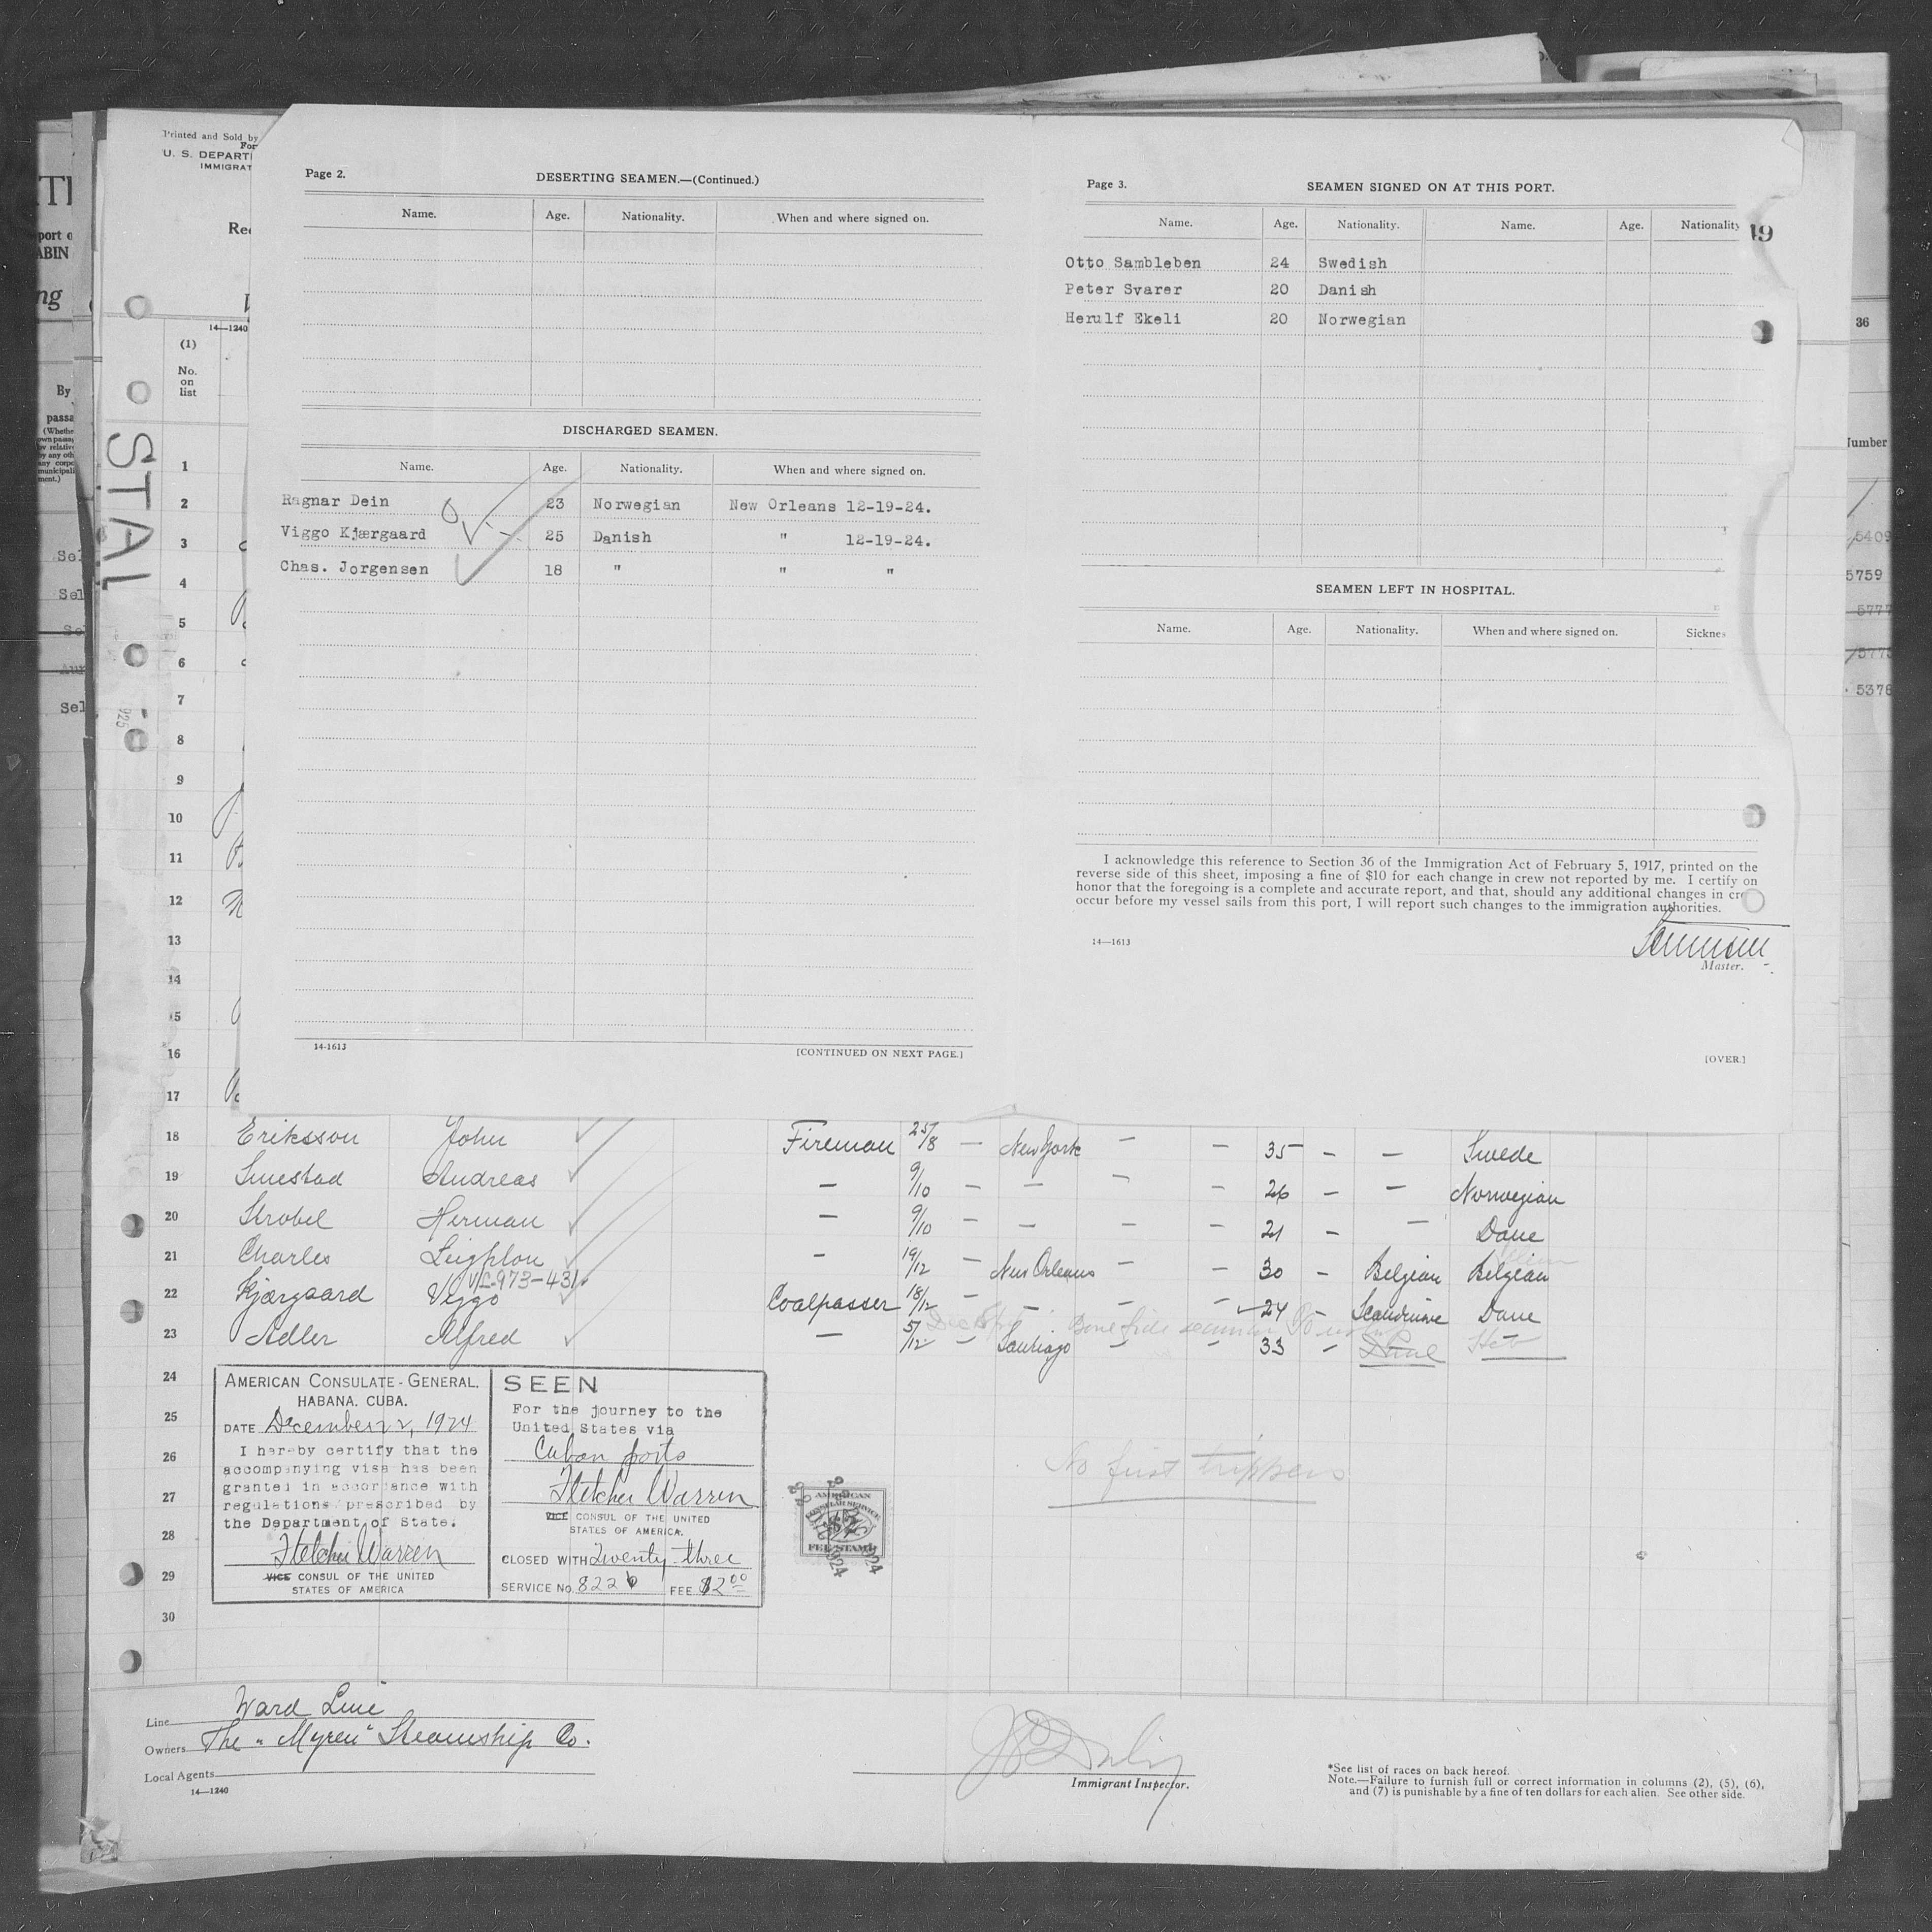 Printed and Sold by
U. S. DEPARTM
IMMIGRAT
14—1240
(1)
No.
on
list
STAL
925
Page 2.
DESERTING SEAMEN.—(Continued.)
Name. Age. Nationality. When and where signed on.
DISCHARGED SEAMEN.
Name. Age. Nationality. When and where signed on.
Ragnar Dein 23 Norwegian New Orleans 12-19-24.
Viggo Kjærgaard 25 Danish " 12-19-24.
Chas. Jorgensen 18 " " "
14-1613
[CONTINUED ON NEXT PAGE.]
Page 3.
SEAMEN SIGNED ON AT THIS PORT.
Name. Age. Nationality. Name. Age. Nationality
19
Otto Sambleben 24 Swedish
Peter Svarer 20 Danish
Herulf Ekeli 20 Norwegian
SEAMEN LEFT IN HOSPITAL.
Name. Age. Nationality. When and where signed on. Sicknes
I acknowledge this reference to Section 36 of the Immigration Act of February 5, 1917, printed on the
reverse side of this sheet, imposing a fine of $10 for each change in crew not reported by me. I certify on
honor that the foregoing is a complete and accurate report, and that, should any additional changes in cre
occur before my vessel sails from this port, I will report such changes to the immigration authorities.
14—1613
Master.
[OVER.]
36
Number
5409
5759
5777
5775
5376
1
2
3
4
5
6
7
8
9
10
11
12
13
14
15
16
17
18 Eriksson John Fireman 25/8 — New York — — 35 — — Swede
19 Smestad Andreas — 9/10 — — — — 26 — — Norwegian
20 Strobel Herman — 9/10 — — — — 21 — — Dane
21 Charles Leighton — 19/12 — New Orleans — 30 — Belgian Belgian
22 Kjærgaard Viggo Coalpasser 18/12 — — — — 24 — Scandinave Dane
23 Adler Alfred — 5/12 — Santiago — — 33 — Dane Heb
24
25
26
27
28
29
30
AMERICAN CONSULATE-GENERAL.
HABANA. CUBA.
DATE December 22, 1924
I hereby certify that the
accompanying visa has been
granted in accordance with
regulations prescribed by
the Department of State.
Fletcher Warren
VICE CONSUL OF THE UNITED
STATES OF AMERICA
SEEN
For the journey to the
United States via
Cuban ports
Fletcher Warren
VICE CONSUL OF THE UNITED
STATES OF AMERICA.
CLOSED WITH Twenty-three
SERVICE No. 8226 FEE $2.00
AMERICAN
CONSULAR SERVICE
FEE STAMP
No first trippers
Line Ward Line
Owners The "Myren" Steamship Co.
Local Agents
14—1240
Immigrant Inspector.
*See list of races on back hereof.
Note.—Failure to furnish full or correct information in columns (2), (5), (6),
and (7) is punishable by a fine of ten dollars for each alien. See other side.